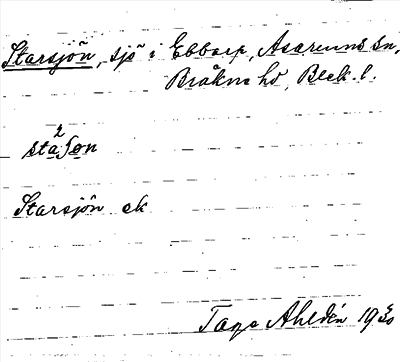 Starsjön, sjö i Ebbarp, Asarums sn,
Bräkne hd, Blek. l.
2
staʃøn
Starsjön ek
Tage Ahldén 1930